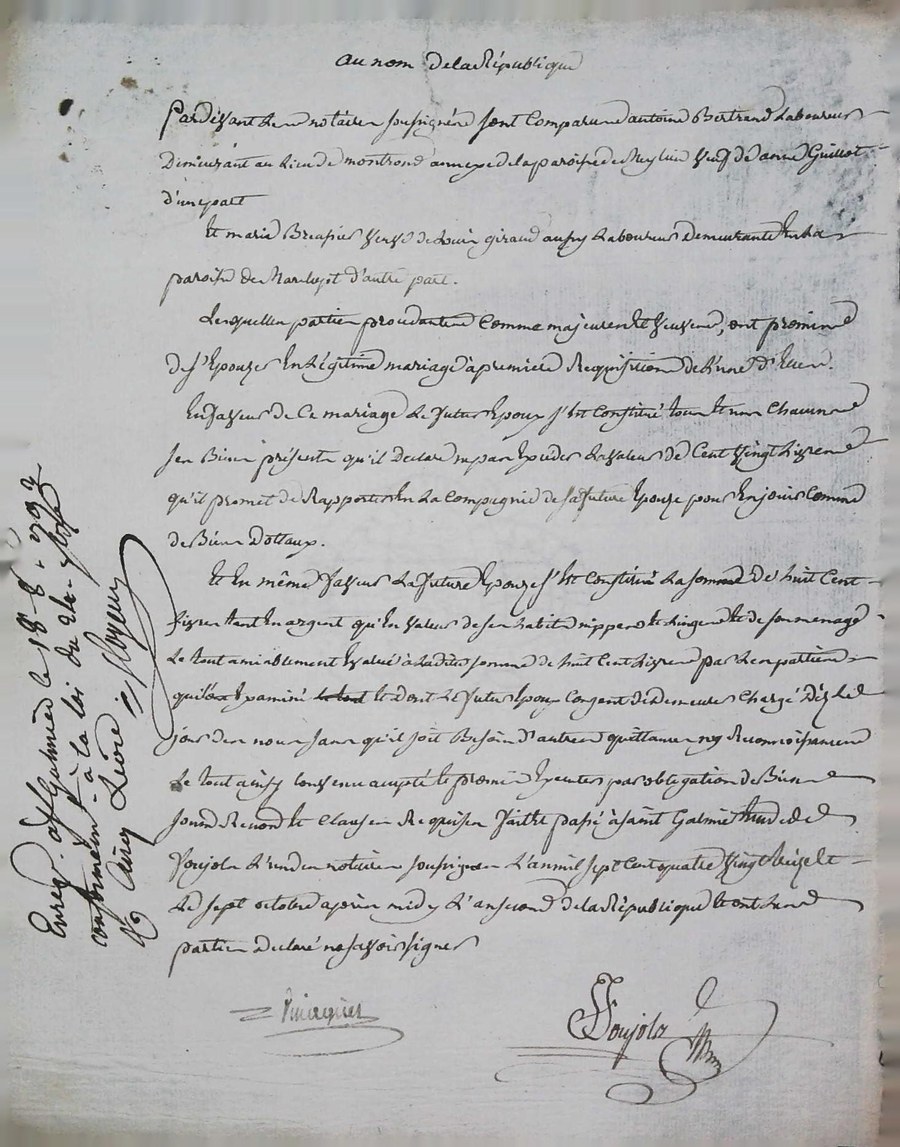 au nom de la République
Pardevant les notaires soussignés sont Comparus antoine Bertrand Laboureur
Demeurant au Lieu de montrond annexe de la paroisse de veuf de anne Guillot
d'une part
Et marie veuve de giraud aussy Laboureur Demeurante En la
paroisse de d'autre part.
Lesquelles parties procedantes Comme majeures Et veuves, ont promis
de s'Epouzer En Légitime mariage à premiere Requisition de L'une d'Elles.
En faveur de Ce mariage Le futur Epoux s'Est Constitué tous Et uns Chacuns
ses Biens présents qu'il Declare Exceder La valeur de Cent vingt Livres
qu'il promet de Rapporter En La Compagnie de sa future Epouze pour En jouir Comme
de Biens Dottaux.
Et En même faveur La future Epouze s'Est Constitué La somme de huit Cent
Livres tant En argent qu'En valeur de ses habits nippes Et linges Et de son menage
Le tout amiablement Evalué à Ladite somme de huit Cent Livres par Les parties
qui l'ont Examiné Et Dont Le futur Epoux Consent de Demeurer Chargé Dez Le
jour des noces sans qu'il soit Besoin d'autres quittances ny Reconnoissances
Le tout ainsy Convenu accepté Et promis Executer par obligation de Biens
soumis Renonc Et Clauses Requises fait Et passé à saint Galmier Etude de
voujola L'un des notaires soussignés L'an mil sept Cent quatre vingt treize Et
Le sept octobre après midy L'an second de la République Et ont Les
parties Declaré ne savoir signer
Voujola
Enreg. à St Galmier le 18 - 8 - 1793
conformément à la loi du
Cinq Livre